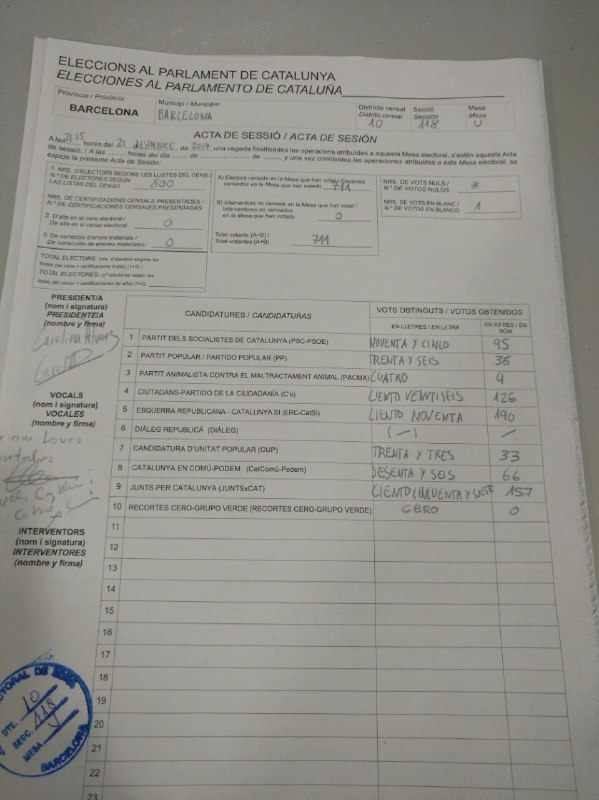 ELECCIONS AL PARLAMENT DE CATALUNYA
ELECCIONES AL PARLAMENTO DE CATALUÑA
Província / Provincia
BARCELONA
Municipi / Municipio
BARCELONA
Districte censal
Distrito censal
10
Secció
Sección
118
Mesa
Mesa
U
ACTA DE SESSIÓ / ACTA DE SESIÓN
A les 21 15 hores del 21 DICIEMBRE de 2017, una vegada finalitzades les operacions atribuïdes a aquesta Mesa electoral, s'estén aquesta Acta
de sessió: / A las ........ horas del día ........ de ........ de ........ y una vez concluidas las operaciones atribuidas a esta Mesa electoral, se
expide la presente Acta de Sesión:
1. NRE. D'ELECTORS SEGONS LES LLISTES DEL CENS /
N.º DE ELECTORES SEGÚN
LAS LISTAS DEL CENSO
800
NRE. DE CERTIFICACIONS CENSALS PRESENTADES /
N.º DE CERTIFICACIONES CENSALES PRESENTADAS
2. D'alta en el cens electoral /
De alta en el censo electoral:
0
3. De correcció d'errors materials /
De corrección de errores materiales:
0
TOTAL ELECTORS: (nre. d'electors segons les
llistes del cens + certificacions d'alta) (1+2) /
TOTAL ELECTORES: (nº electores según las
listas del censo + certificaciones de alta) (1+2)
A) Electors censats en la Mesa que han votat / Electores
censados en la Mesa que han votado
711
B) Interventors no censats en la Mesa que han votat /
Interventores no censados
en la Mesa que han votado
0
Total votants (A+B) /
Total votantes (A+B)
711
NRE. DE VOTS NULS /
N.º DE VOTOS NULOS
3
NRE. DE VOTS EN BLANC /
N.º DE VOTOS EN BLANCO
1
PRESIDENT/A
(nom i signatura)
PRESIDENTE/A
(nombre y firma)
Carolina
VOCALS
(nom i signatura)
VOCALES
(nombre y firma)
INTERVENTORS
(nom i signatura)
INTERVENTORES
(nombre y firma)
CANDIDATURES / CANDIDATURAS
VOTS OBTINGUTS / VOTOS OBTENIDOS
EN LLETRES / EN LETRA
EN XIFRES / EN NÚM.
1 PARTIT DELS SOCIALISTES DE CATALUNYA (PSC-PSOE) NOVENTA Y CINCO 95
2 PARTIT POPULAR / PARTIDO POPULAR (PP) TRENTA Y SEIS 36
3 PARTIT ANIMALISTA CONTRA EL MALTRACTAMENT ANIMAL (PACMA) CUATRO 4
4 CIUTADANS-PARTIDO DE LA CIUDADANÍA (C's) CIENTO VEINTISEIS 126
5 ESQUERRA REPUBLICANA - CATALUNYA SÍ (ERC-CatSí) CIENTO NOVENTA 190
6 DIÀLEG REPUBLICÀ (DIÀLEG) (—) —
7 CANDIDATURA D'UNITAT POPULAR (CUP) TRENTA Y TRES 33
8 CATALUNYA EN COMÚ-PODEM (CatComú-Podem) SESENTA Y SEIS 66
9 JUNTS PER CATALUNYA (JUNTSxCAT) CIENTO CINCUENTA Y SIETE 157
10 RECORTES CERO-GRUPO VERDE (RECORTES CERO-GRUPO VERDE) CERO 0
11
12
13
14
15
16
17
18
19
20
21
22
23
DTE. 10
SECC. 118
MESA U
BARCELONA